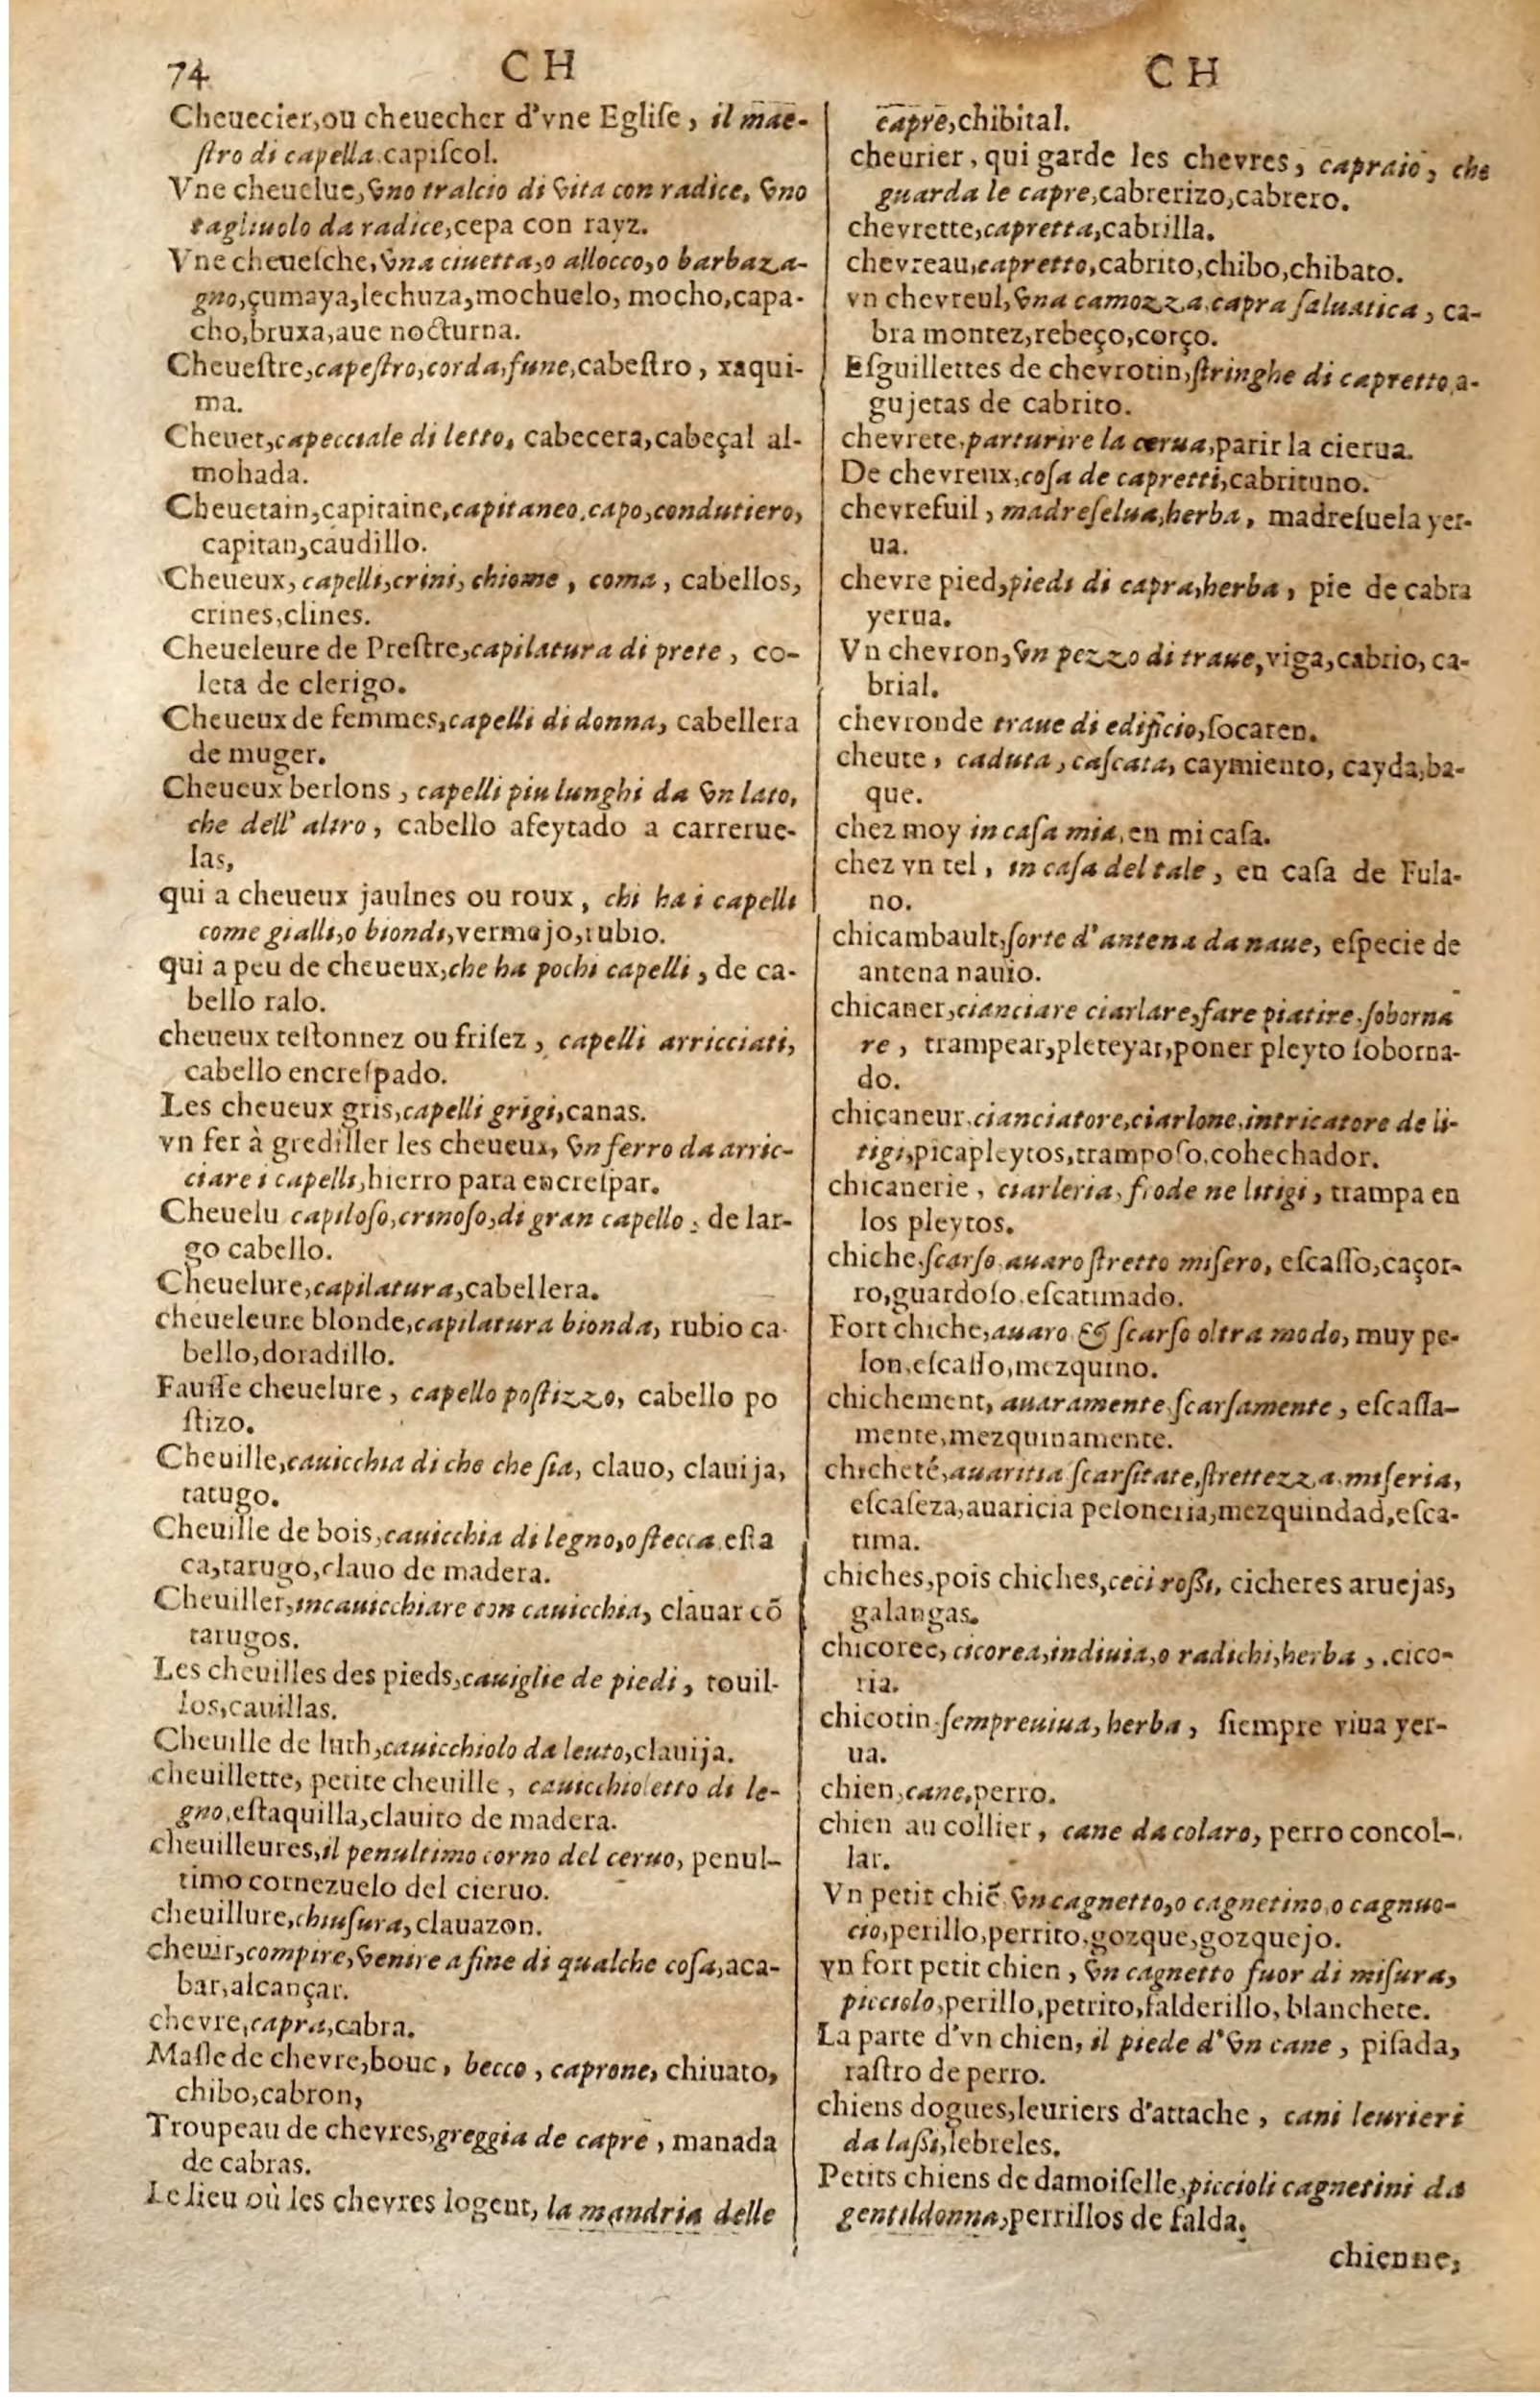 74
CH
CH
Cheuecier,ou cheuecher d'vne Egliſe, il mae-
ſtro di capella.capiſcol.
Vne cheuelue,vno tralcio di vita con radice, vno
tagliuolo da radice,cepa con rayz.
Vne cheueſche,vna ciuetta,o allocco,o barbaza-
gno,çumaya,lechuza,mochuelo, mocho,capa-
cho,bruxa,aue nocturna.
Cheueſtre,capeſtro,corda,fune,cabeſtro, xaqui-
ma.
Cheuet,capecciale di letto, cabecera,cabeçal al-
mohada.
Cheuetain,capitaine,capitaneo,capo,condutiero,
capitan,caudillo.
Cheueux,capelli,crini,chiome, coma, cabellos,
crines,clines.
Cheueleure de Preſtre,capilatura di prete, co-
leta de clerigo.
Cheueux de femmes,capelli di donna, cabellera
de muger.
Cheueux berlons, capelli piu lunghi da vn lato,
che dell' altro, cabello afeytado a carrerue-
las,
qui a cheueux jaulnes ou roux, chi ha i capelli
come gialli,o biondi,vermejo,rubio.
qui a peu de cheueux,che ha pochi capelli, de ca-
bello ralo.
cheueux teſtonnez ou friſez, capelli arricciati,
cabello encreſpado.
Les cheueux gris,capelli grigi,canas.
vn fer à grediller les cheueux, vn ferro da arric-
ciare i capelli,hierro para encreſpar.
Cheuelu capiloſo,crinoſo,di gran capello, de lar-
go cabello.
Cheuelure,capilatura,cabellera.
cheueleure blonde,capilatura bionda, rubio ca-
bello,doradillo.
Fauſſe cheuelure, capello poſtizzo, cabello po
ſtizo.
Cheuille,cauicchia di che che ſia, clauo, clauija,
tatugo.
Cheuille de bois,cauicchia di legno,o ſtecca eſta
ca,tarugo,clauo de madera.
Cheuiller,incauicchiare con cauicchia, clauar cõ
tarugos.
Les cheuilles des pieds,cauiglie de piedi, touil-
los,cauillas.
Cheuille de luth,cauicchiolo da leuto,clauija.
cheuillette, petite cheuille, cauicchioletto di le-
gno,eſtaquilla,clauito de madera.
cheuilleures,il penultimo corno del ceruo, penul-
timo cornezuelo del cieruo.
cheuillure,chiuſura,clauazon.
cheuir,compire,venire a fine di qualche coſa,aca-
bar,alcançar.
chevre,capra,cabra.
Maſle de chevre,bouc, becco, caprone, chiuato,
chibo,cabron,
Troupeau de chevres,greggia de capre, manada
de cabras.
Le lieu où les chevres logent, la mandria delle
capre,chibital.
cheurier, qui garde les chevres, capraio, che
guarda le capre,cabrerizo,cabrero.
chevrette,capretta,cabrilla.
chevreau,capretto,cabrito,chibo,chibato.
vn chevreul,vna camozza,capra ſaluatica, ca-
bra montez,rebeço,corço.
Eſguillettes de chevrotin,ſtringhe di capretto,a-
gujetas de cabrito.
chevrete,parturire la cerua,parir la cierua.
De chevreux,coſa de capretti,cabrituno.
chevrefuil, madreſelua,herba, madreſuela yer-
ua.
chevre pied,piedi di capra,herba, pie de cabra
yerua.
Vn chevron,vn pezzo di traue,viga,cabrio, ca-
brial.
chevronde traue di edificio,ſocaren.
cheute, caduta, caſcata, caymiento, cayda,ba-
que.
chez moy in caſa mia,en mi caſa.
chez vn tel, in caſa del tale, en caſa de Fula-
no.
chicambault,ſorte d'antena da naue, eſpecie de
antena nauio.
chicaner,cianciare ciarlare,fare piatire,ſoborna
re, trampear,pleteyar,poner pleyto ſoborna-
do.
chicaneur,cianciatore,ciarlone,intricatore de li-
tigi,picapleytos,trampoſo,cohechador.
chicanerie, ciarleria, frode ne litigi, trampa en
los pleytos.
chiche,ſcarſo,auaro ſtretto miſero, eſcaſſo,caçor-
ro,guardoſo,eſcatimado.
Fort chiche,auaro & ſcarſo oltra modo, muy pe-
lon,eſcaſſo,mezquino.
chichement, auaramente ſcarſamente, eſcaſſa-
mente,mezquinamente.
chicheté,auaritia ſcarſitate,ſtrettezza,miſeria,
eſcaſeza,auaricia peloneria,mezquindad,eſca-
tima.
chiches,pois chiches,ceci roßi, cicheres aruejas,
galangas.
chicoree, cicorea,indiuia,o radichi,herba, .cico-
ria.
chicotin,ſempreuiua, herba, ſiempre viua yer-
ua.
chien,cane,perro.
chien au collier, cane da colaro, perro con col-
lar.
Vn petit chiẽ vn cagnetto,o cagnetino,o cagnuo-
cio,perillo,perrito,gozque,gozquejo.
vn fort petit chien, vn cagnetto fuor di miſura,
picciolo,perillo,petrito,falderillo, blanchete.
La parte d'vn chien, il piede d'vn cane, piſada,
raſtro de perro.
chiens dogues,leuriers d'attache, cani leurieri
da laßi,lebreles.
Petits chiens de damoiſelle,piccioli cagnetini da
gentildonna,perrillos de falda.
chienne,